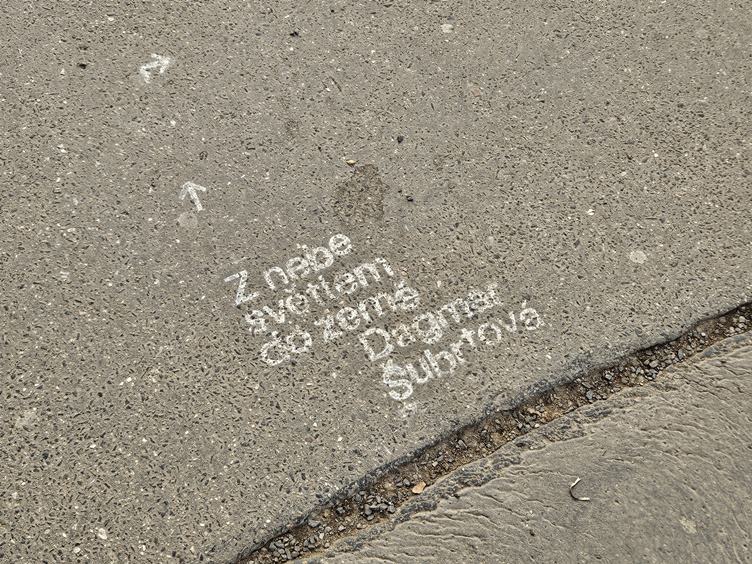 Z nebe
světlem
do země
Dagmar
Šubrtová